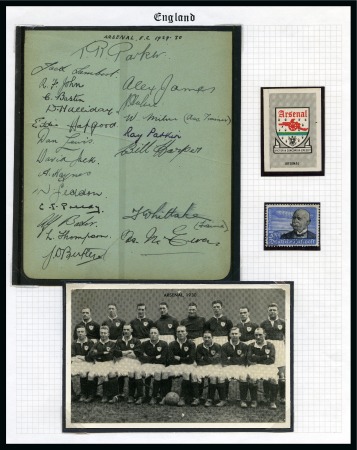 England
ARSENAL. F.C. 1929-30
T. R. Parker
Jack Lambert
R. F. John
Alex James
C. Bastin
D. Halliday
W. Milne (Ass Trainer)
Eddie Hapgood
Ray Parkin
Dan Lewis
Bill Harper
David Jack
A. Haynes
W Seddon
T. Whittaker
Alf Baker
L. Thompson
Arsenal
ARSENAL
ARSENAL, 1930.